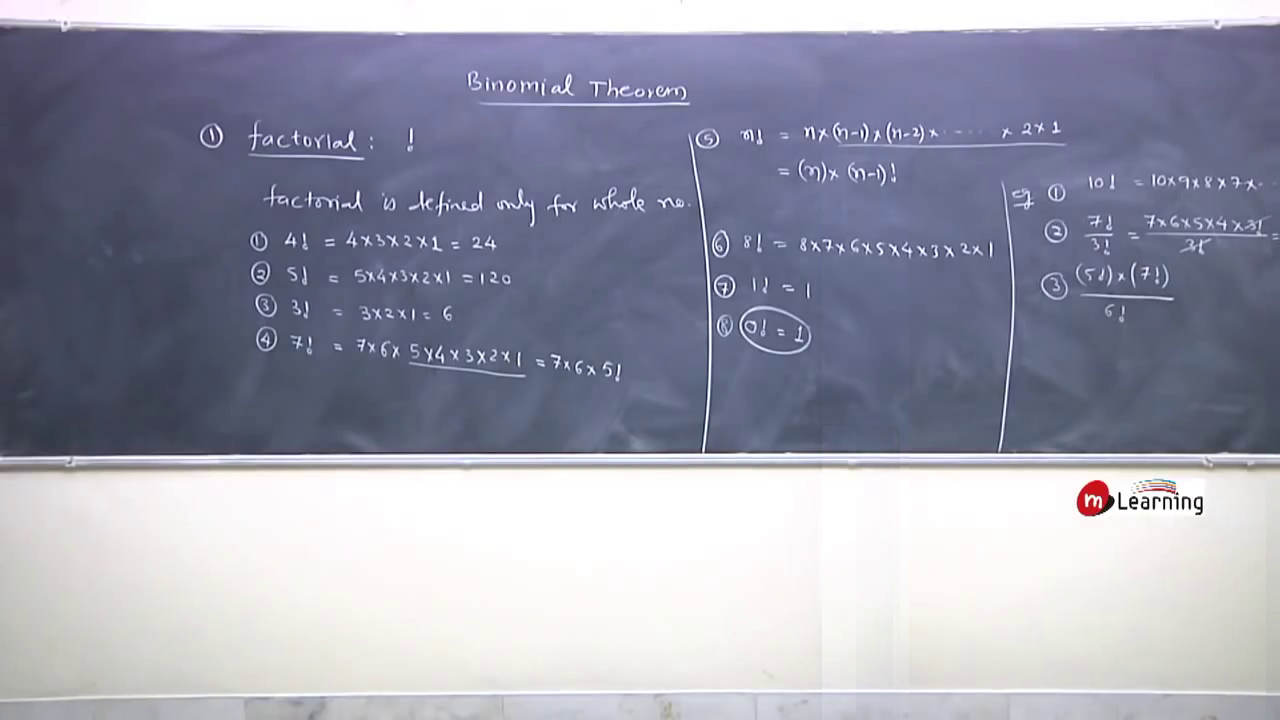 Binomial Theorem
① factorial : !
factorial is defined only for whole no.
① 4! = 4×3×2×1 = 24
② 5! = 5×4×3×2×1 = 120
③ 3! = 3×2×1 = 6
④ 7! = 7×6× 5×4×3×2×1 = 7×6×5!
⑤ n! = n×(n-1)×(n-2)× ...... × 2×1
= (n)× (n-1)!
⑥ 8! = 8×7×6×5×4×3×2×1
⑦ 1! = 1
⑧ 0! = 1
eg ① 10! = 10×9×8×7×..
② 7!/3! = 7×6×5×4×3!/3! =
③ (5!)×(7!)
6!
m Learning